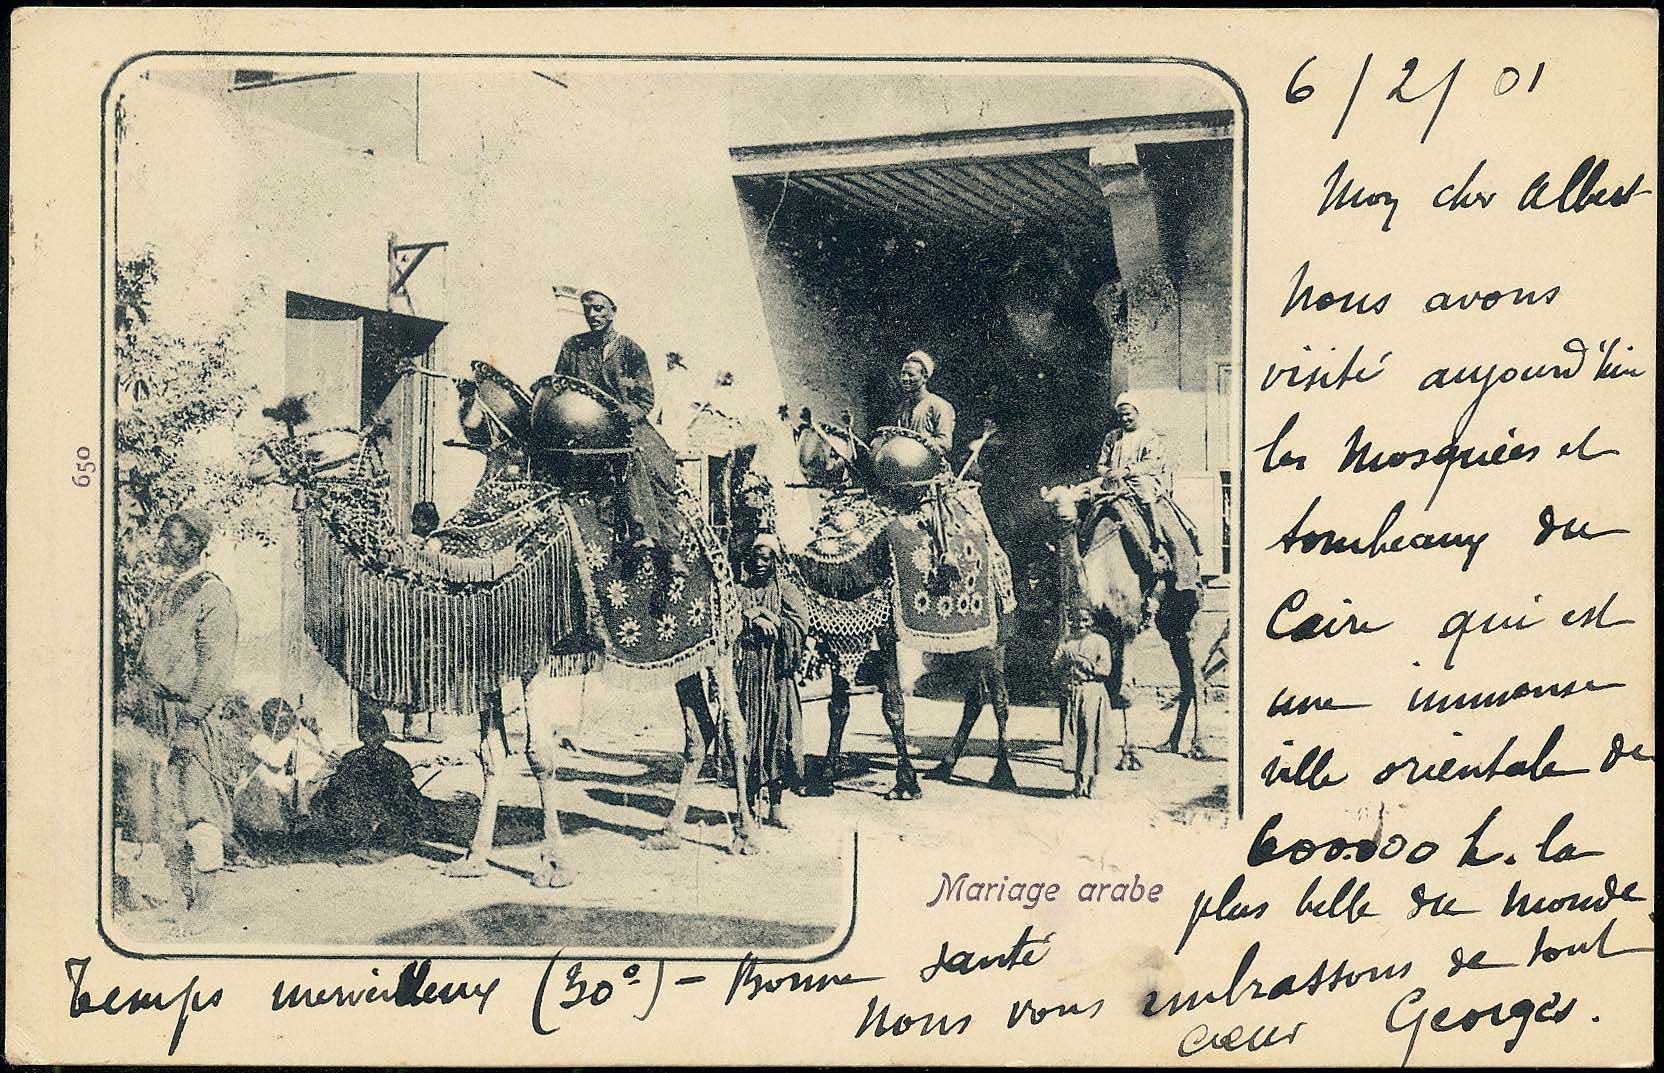 650
Mariage arabe
6/2/01
Mon cher Albert
Nous avons
visité aujourd'hui
les Mosquées et
tombeaux du
Caire qui est
une immense
ville orientale de
600.000 h. la
plus belle du monde.
Temps merveilleux (30°) - Bonne santé
Nous vous embrassons de tout
cœur Georges.